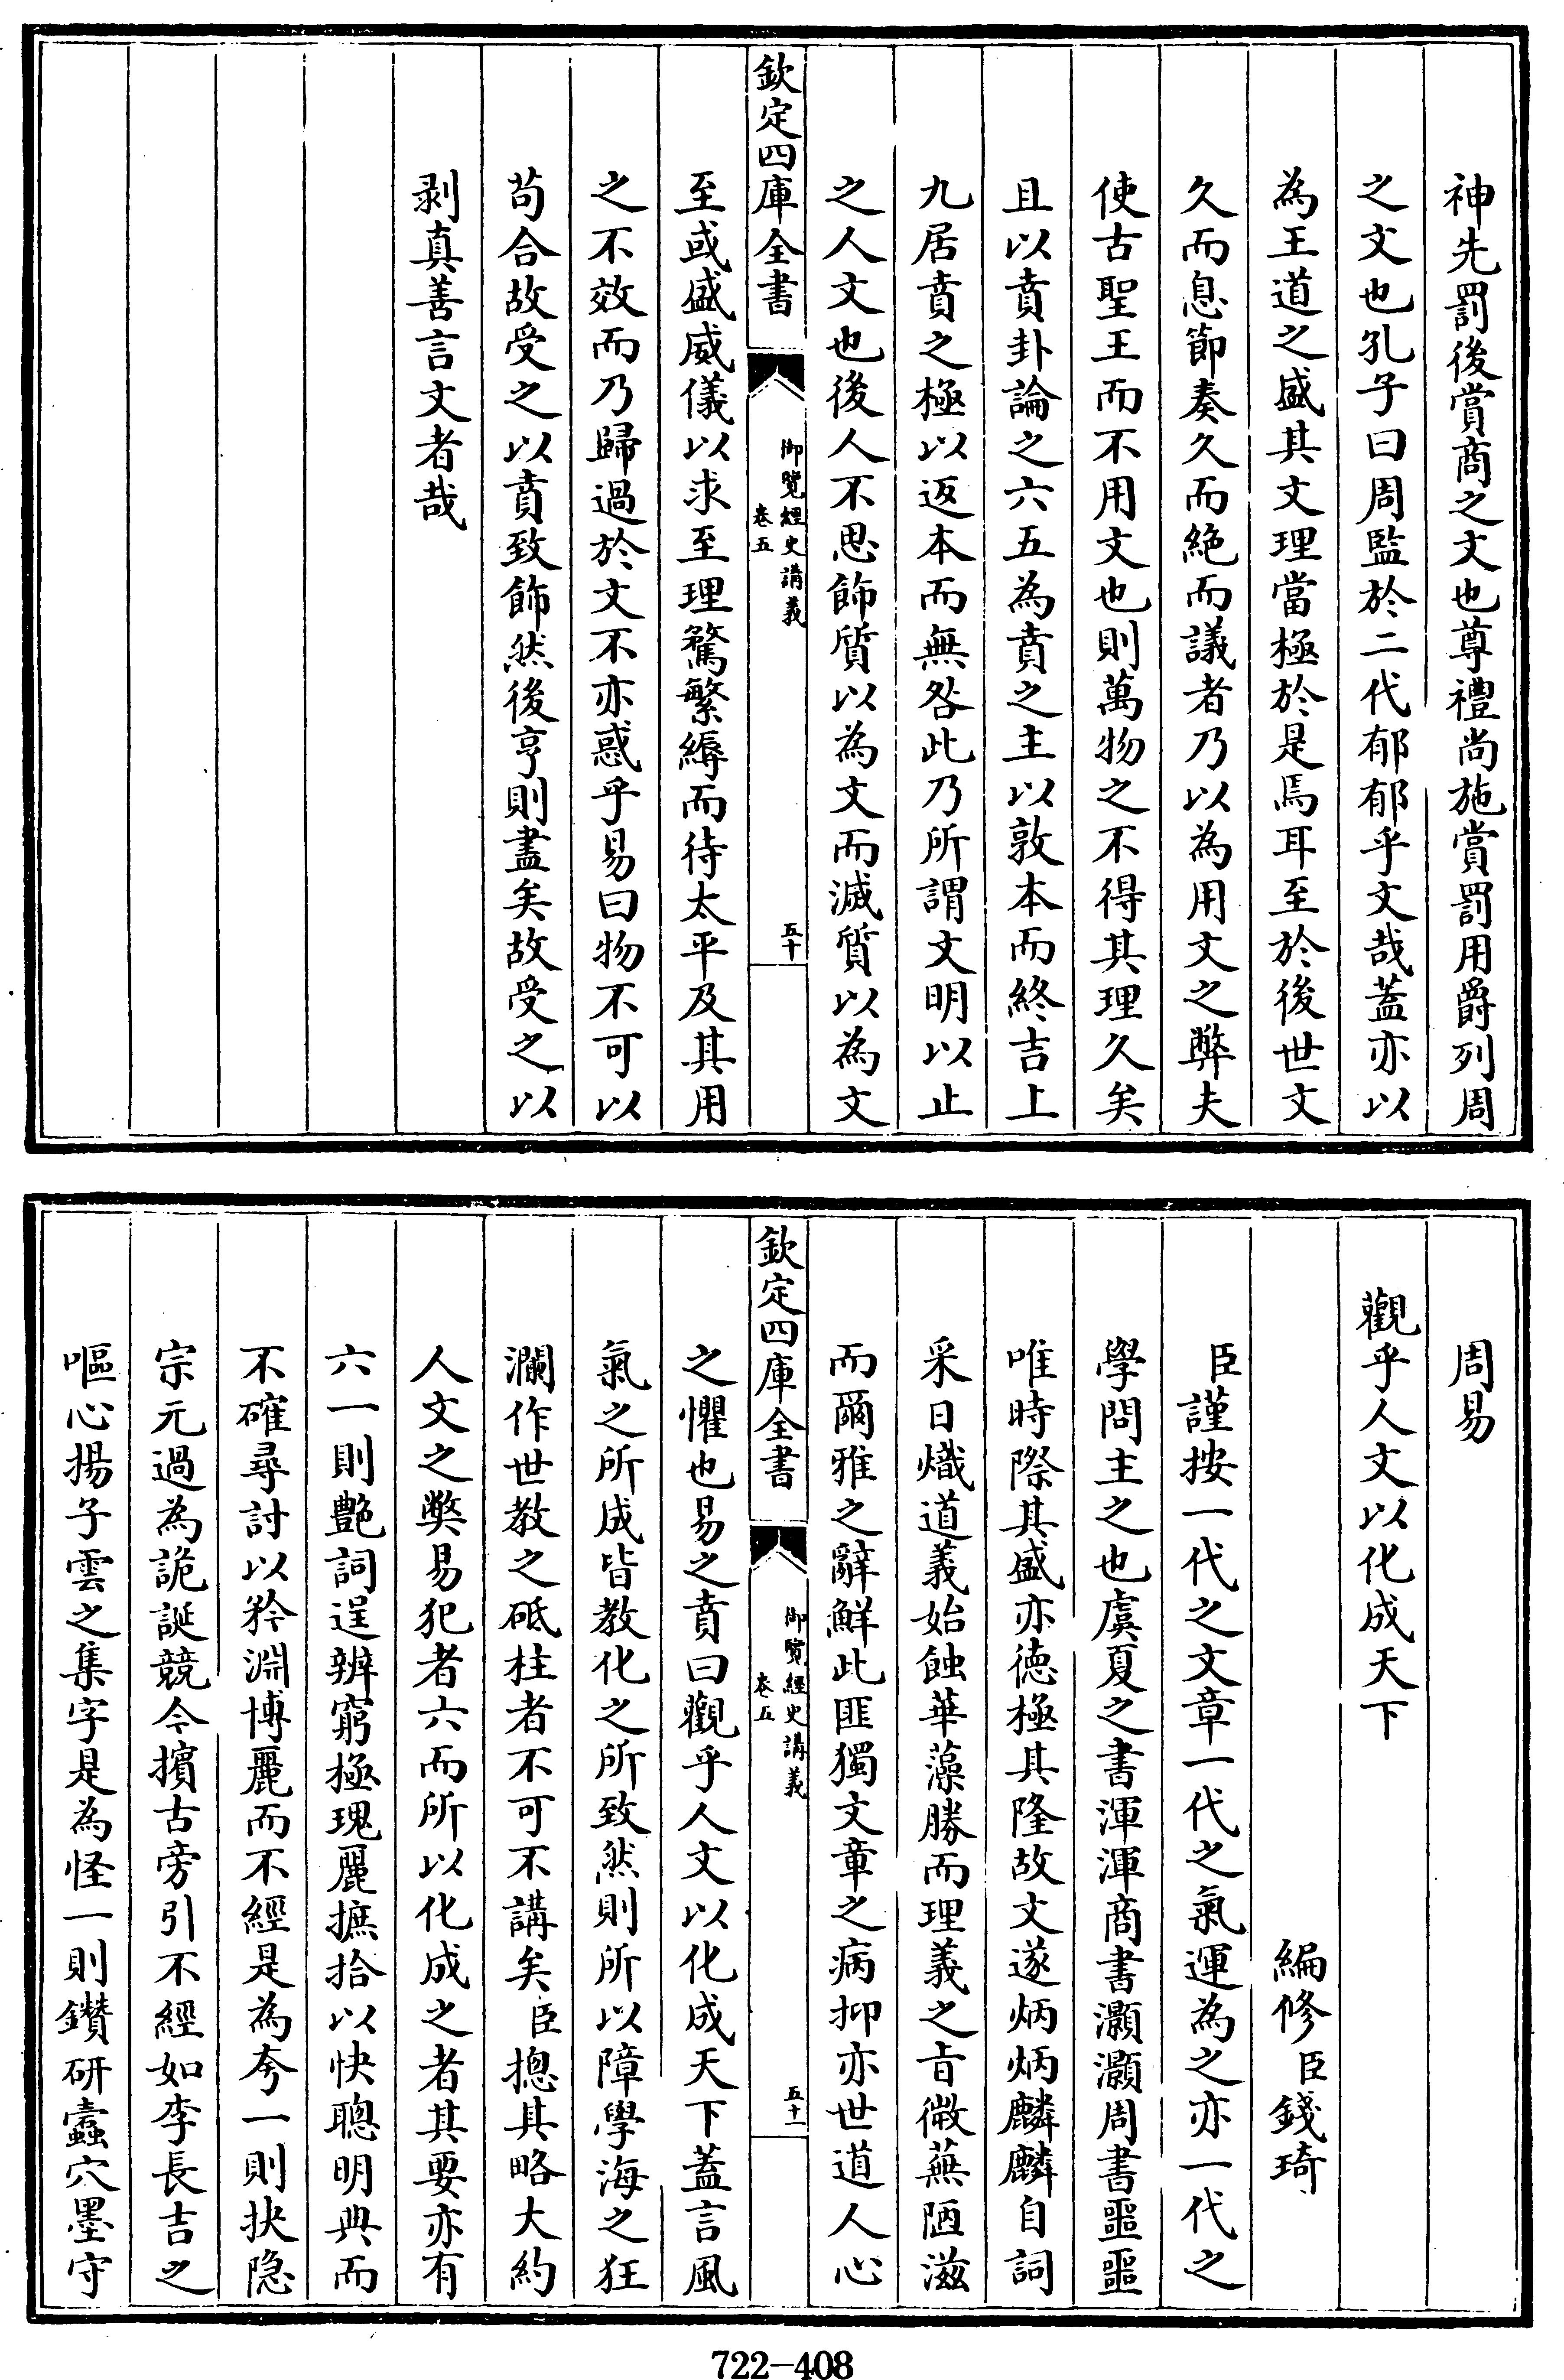 神先罰後賞商之文也尊禮尚施賞罰用爵列周
之文也孔子曰周監於二代郁郁乎文哉蓋亦以
為王道之盛其文理當極於是焉耳至於後世文
久而息節奏久而絕而議者乃以為用文之弊夫
使古聖王而不用文也則萬物之不得其理久矣
且以賁卦論之六五為賁之主以敦本而終吉上
九居賁之極以返本而無咎此乃所謂文明以止
之人文也後人不思飾質以為文而滅質以為文
欽定四庫全書
御覽經史講義
卷五
五十
至或盛威儀以求至理騖繁縟而待太平及其用
之不效而乃歸過於文不亦惑乎易曰物不可以
苟合故受之以賁致飾然後亨則盡矣故受之以
剥真善言文者哉
周易
觀乎人文以化成天下
編修臣錢琦
臣謹按一代之文章一代之氣運為之亦一代之
學問主之也虞夏之書渾渾商書灝灝周書噩噩
唯時際其盛亦徳極其隆故文遂炳炳麟麟自詞
采日熾道義始蝕華藻勝而理義之旨微蕪陋滋
而爾雅之辭鮮此匪獨文章之病抑亦世道人心
欽定四庫全書
御覽經史講義
卷五
五十一
之懼也易之賁曰觀乎人文以化成天下蓋言風
氣之所成皆教化之所致然則所以障學海之狂
瀾作世教之砥柱者不可不講矣臣摠其略大約
人文之弊易犯者六而所以化成之者其要亦有
六一則艶詞逞辨窮極瑰麗摭拾以快聰明典而
不確尋討以矜淵博麗而不經是為夸一則抉隐
宗元過為詭誕競今擯古旁引不經如李長吉之
嘔心揚子雲之集字是為怪一則鑚研蠧穴墨守
722—408